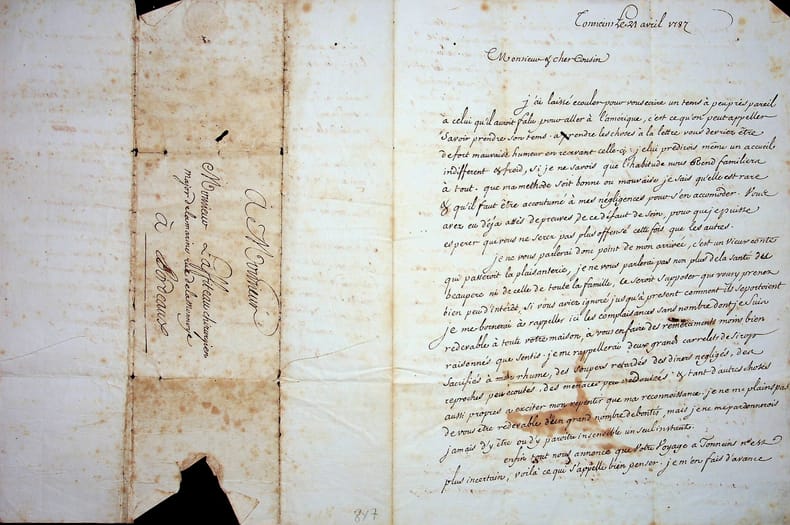 Tonneins Le 21 avril 1787
Monsieur & cher Cousin
j'ai laissé ecouler pour vous ecrire un tems à peu près pareil
à celui qu'il auroit falu pour aller à l'amerique, c'est ce qu'on peut appeller
savoir prendre son tems. a prendre les choses à la lettre vous devriez être
de fort mauvaise humeur en recevant celle-ci; je lui prédirois même un accueil
indifferent & froid, si je ne savois que l'habitude nous rend familiers
à tout. que ma methode soit bonne ou mauvaise je sais qu'elle est rare
& qu'il faut être acoutumé à mes négligences pour s'en accomoder. Vous
avez eu déja assés de preuves de ce défaut de soin, pour que je puisse
esperer que vous ne serez pas plus offensé cette fois que les autres.
je ne vous parlerai donc point de mon arrivée, c'est un vieux conte
qui passeroit la plaisanterie, je ne vous parlerai pas non plus de la santé du
beaupere ni de celle de toute la famille, ce seroit supposer que vous y prenez
bien peu d'intéret si vous aviez ignoré jusqu'à present comment ils se portoient
je me bornerai à rappeller ici les complaisances sans nombre dont je suis
redevable à toute votre maison, à vous en faire des remerciments moins bien
raisonnés que sentis. je me rappellerai deux grand carrelets de sirop
sacrifiés à mon rhume, des soupers retardés des diners negligés, des
reproches peu ecoutés, des menaces peu redoutées, & tant d'autres choses
aussi propres a exciter mon repentir que ma reconnoissance. je ne me plains pas
de vous être redevable d'un grand nombre de bontés, mais je ne me pardonnerois
jamais d'y être ou d'y paroitre insensible un seul instant.
enfin tout nous annonce que votre voyage à Tonneins n'est
plus incertain, voila ce qui s'appelle bien penser. je m'en fais d'avance
A Monsieur
Monsieur Laffiteau chirurgien
major de la marine rue de la
à Bordeaux
817